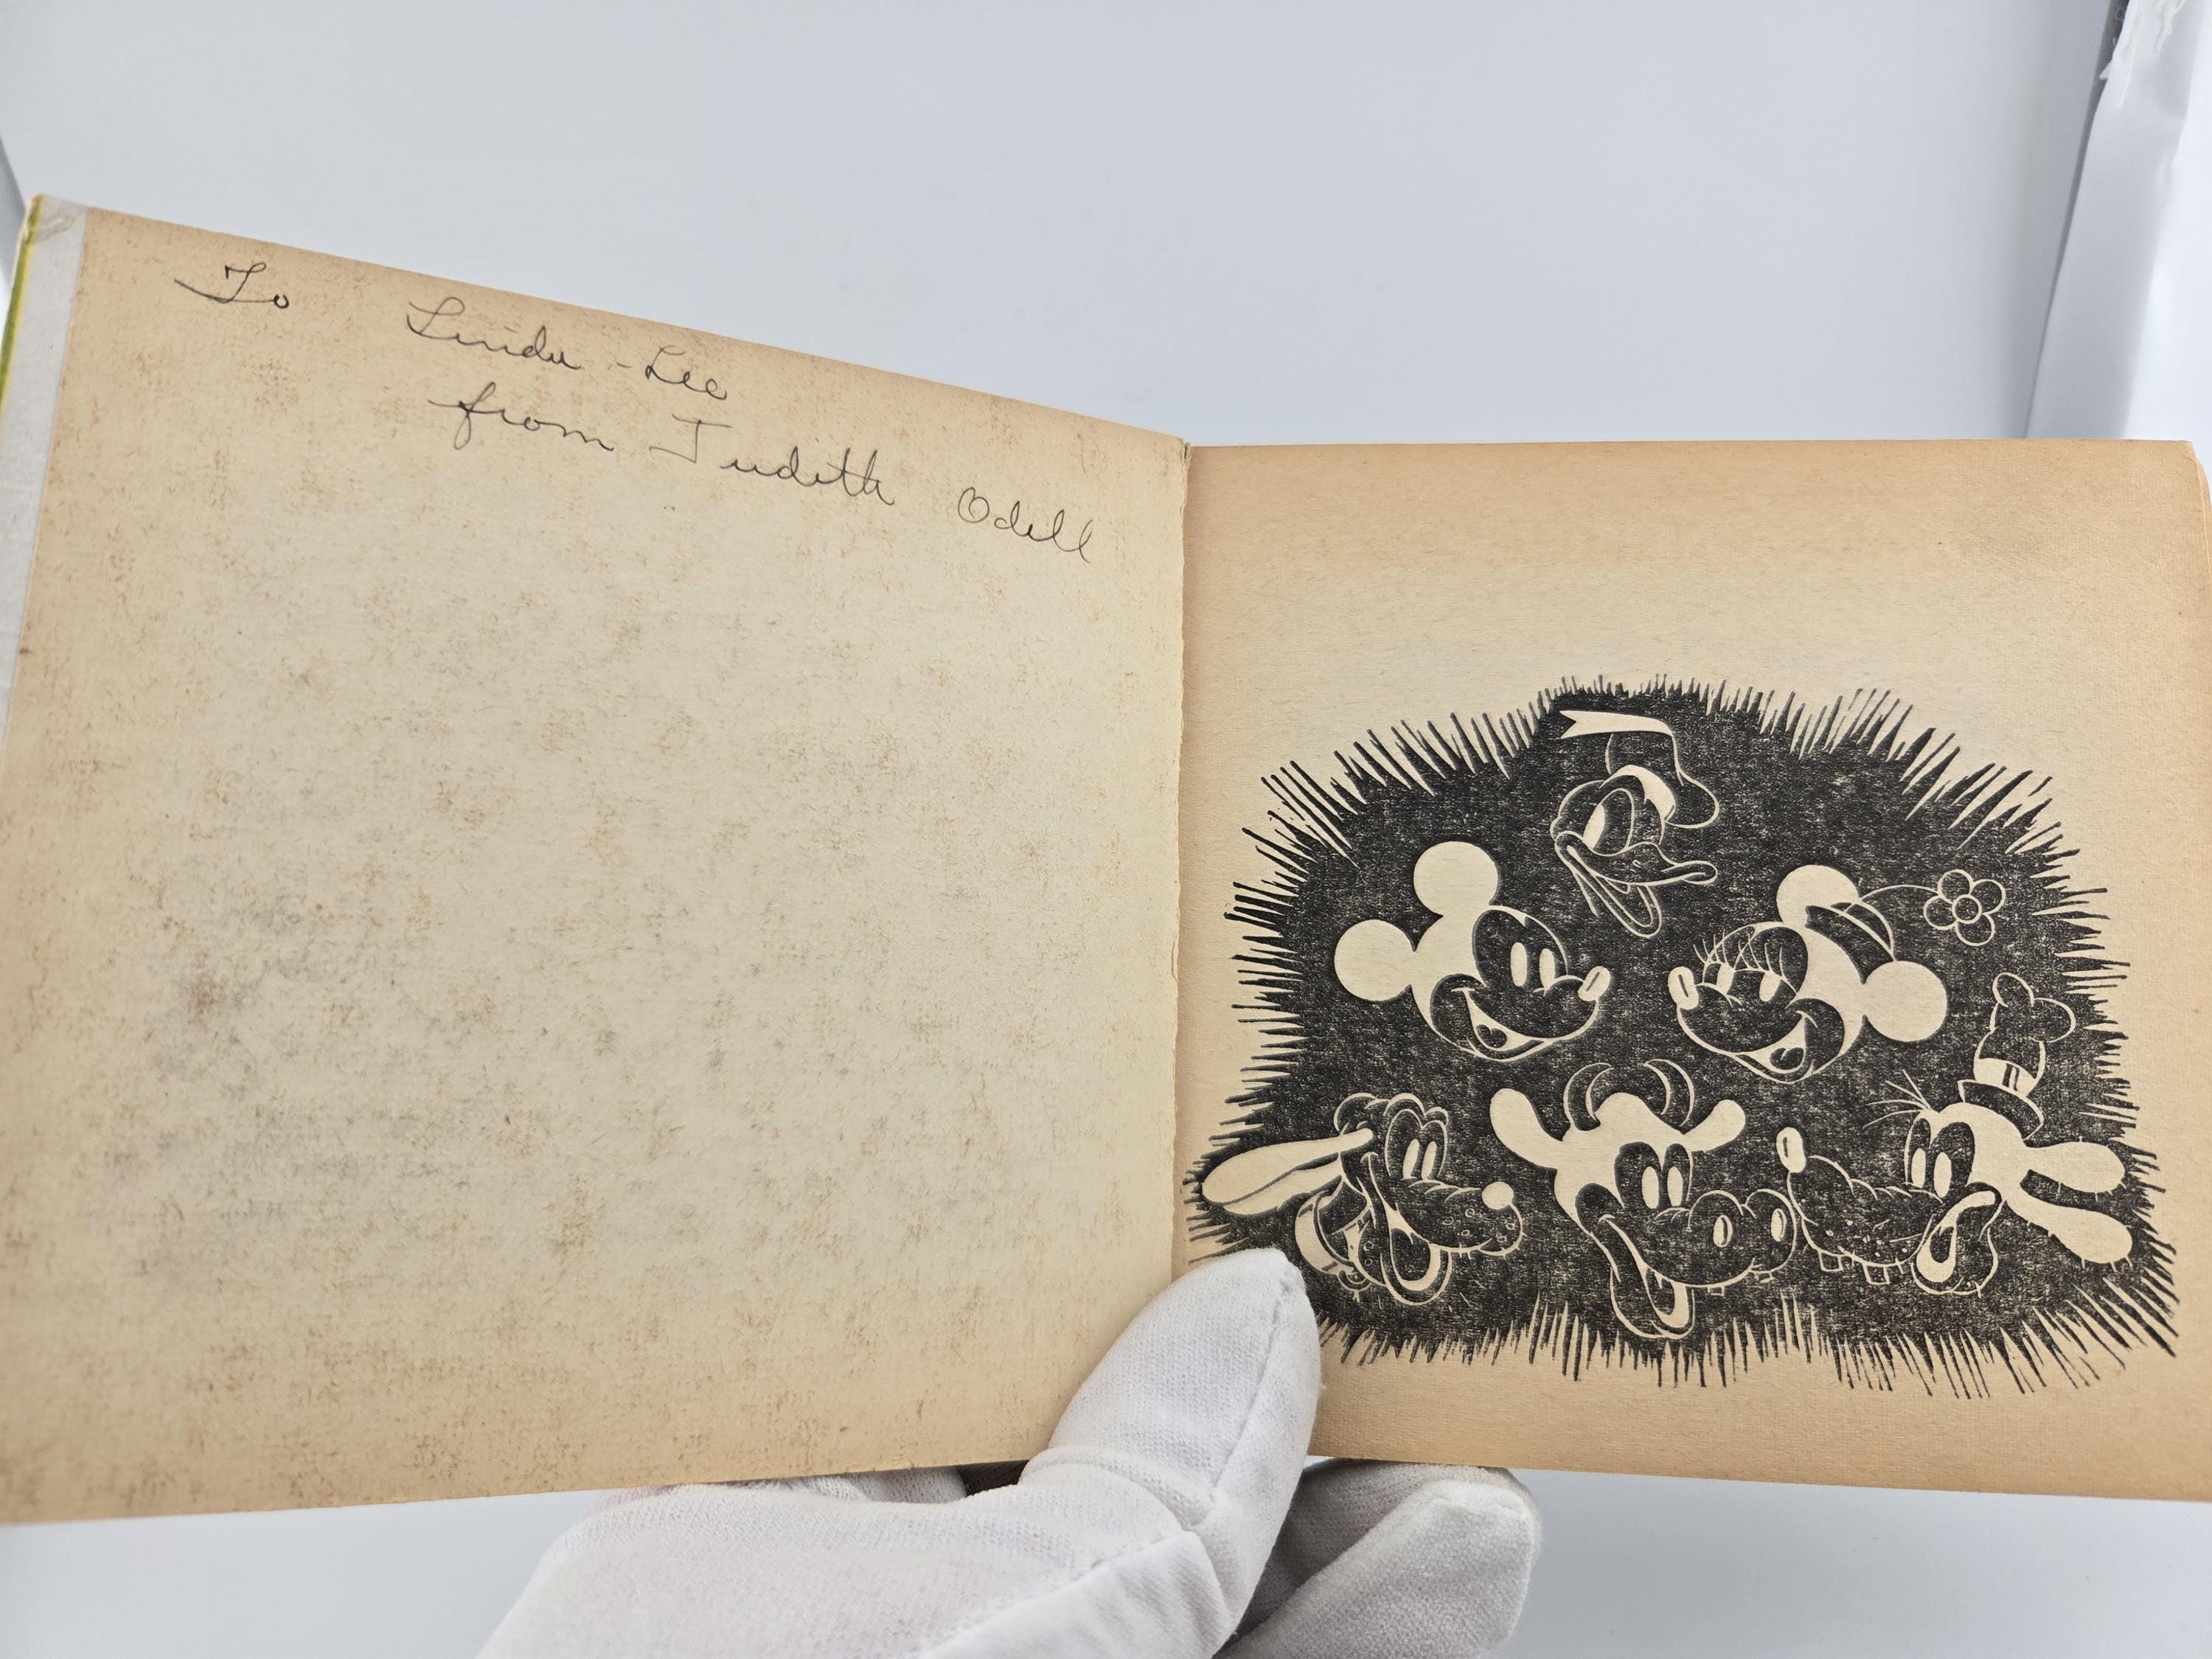 To Linda-Lee
from Judith Odell